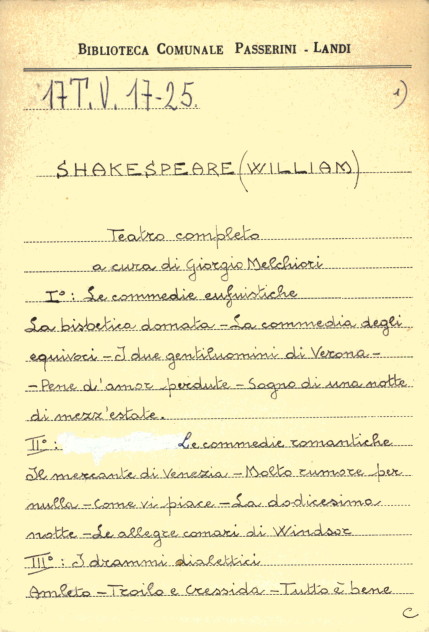 BIBLIOTECA COMUNALE PASSERINI - LANDI
17T.V. 17-25. 1)
SHAKESPEARE (WILLIAM)
Teatro completo
a cura di Giorgio Melchiori
I°: Le commedie eufuistiche
La bisbetica domata - La commedia degli
equivoci - I due gentiluomini di Verona -
- Pene d'amor perdute - Sogno di una notte
di mezz'estate.
II°: Le commedie romantiche
Il mercante di Venezia - Molto rumore per
nulla - Come vi piace - La dodicesima
notte - Le allegre comari di Windsor
III°: I drammi dialettici
Amleto - Troilo e Cressida - Tutto è bene
C